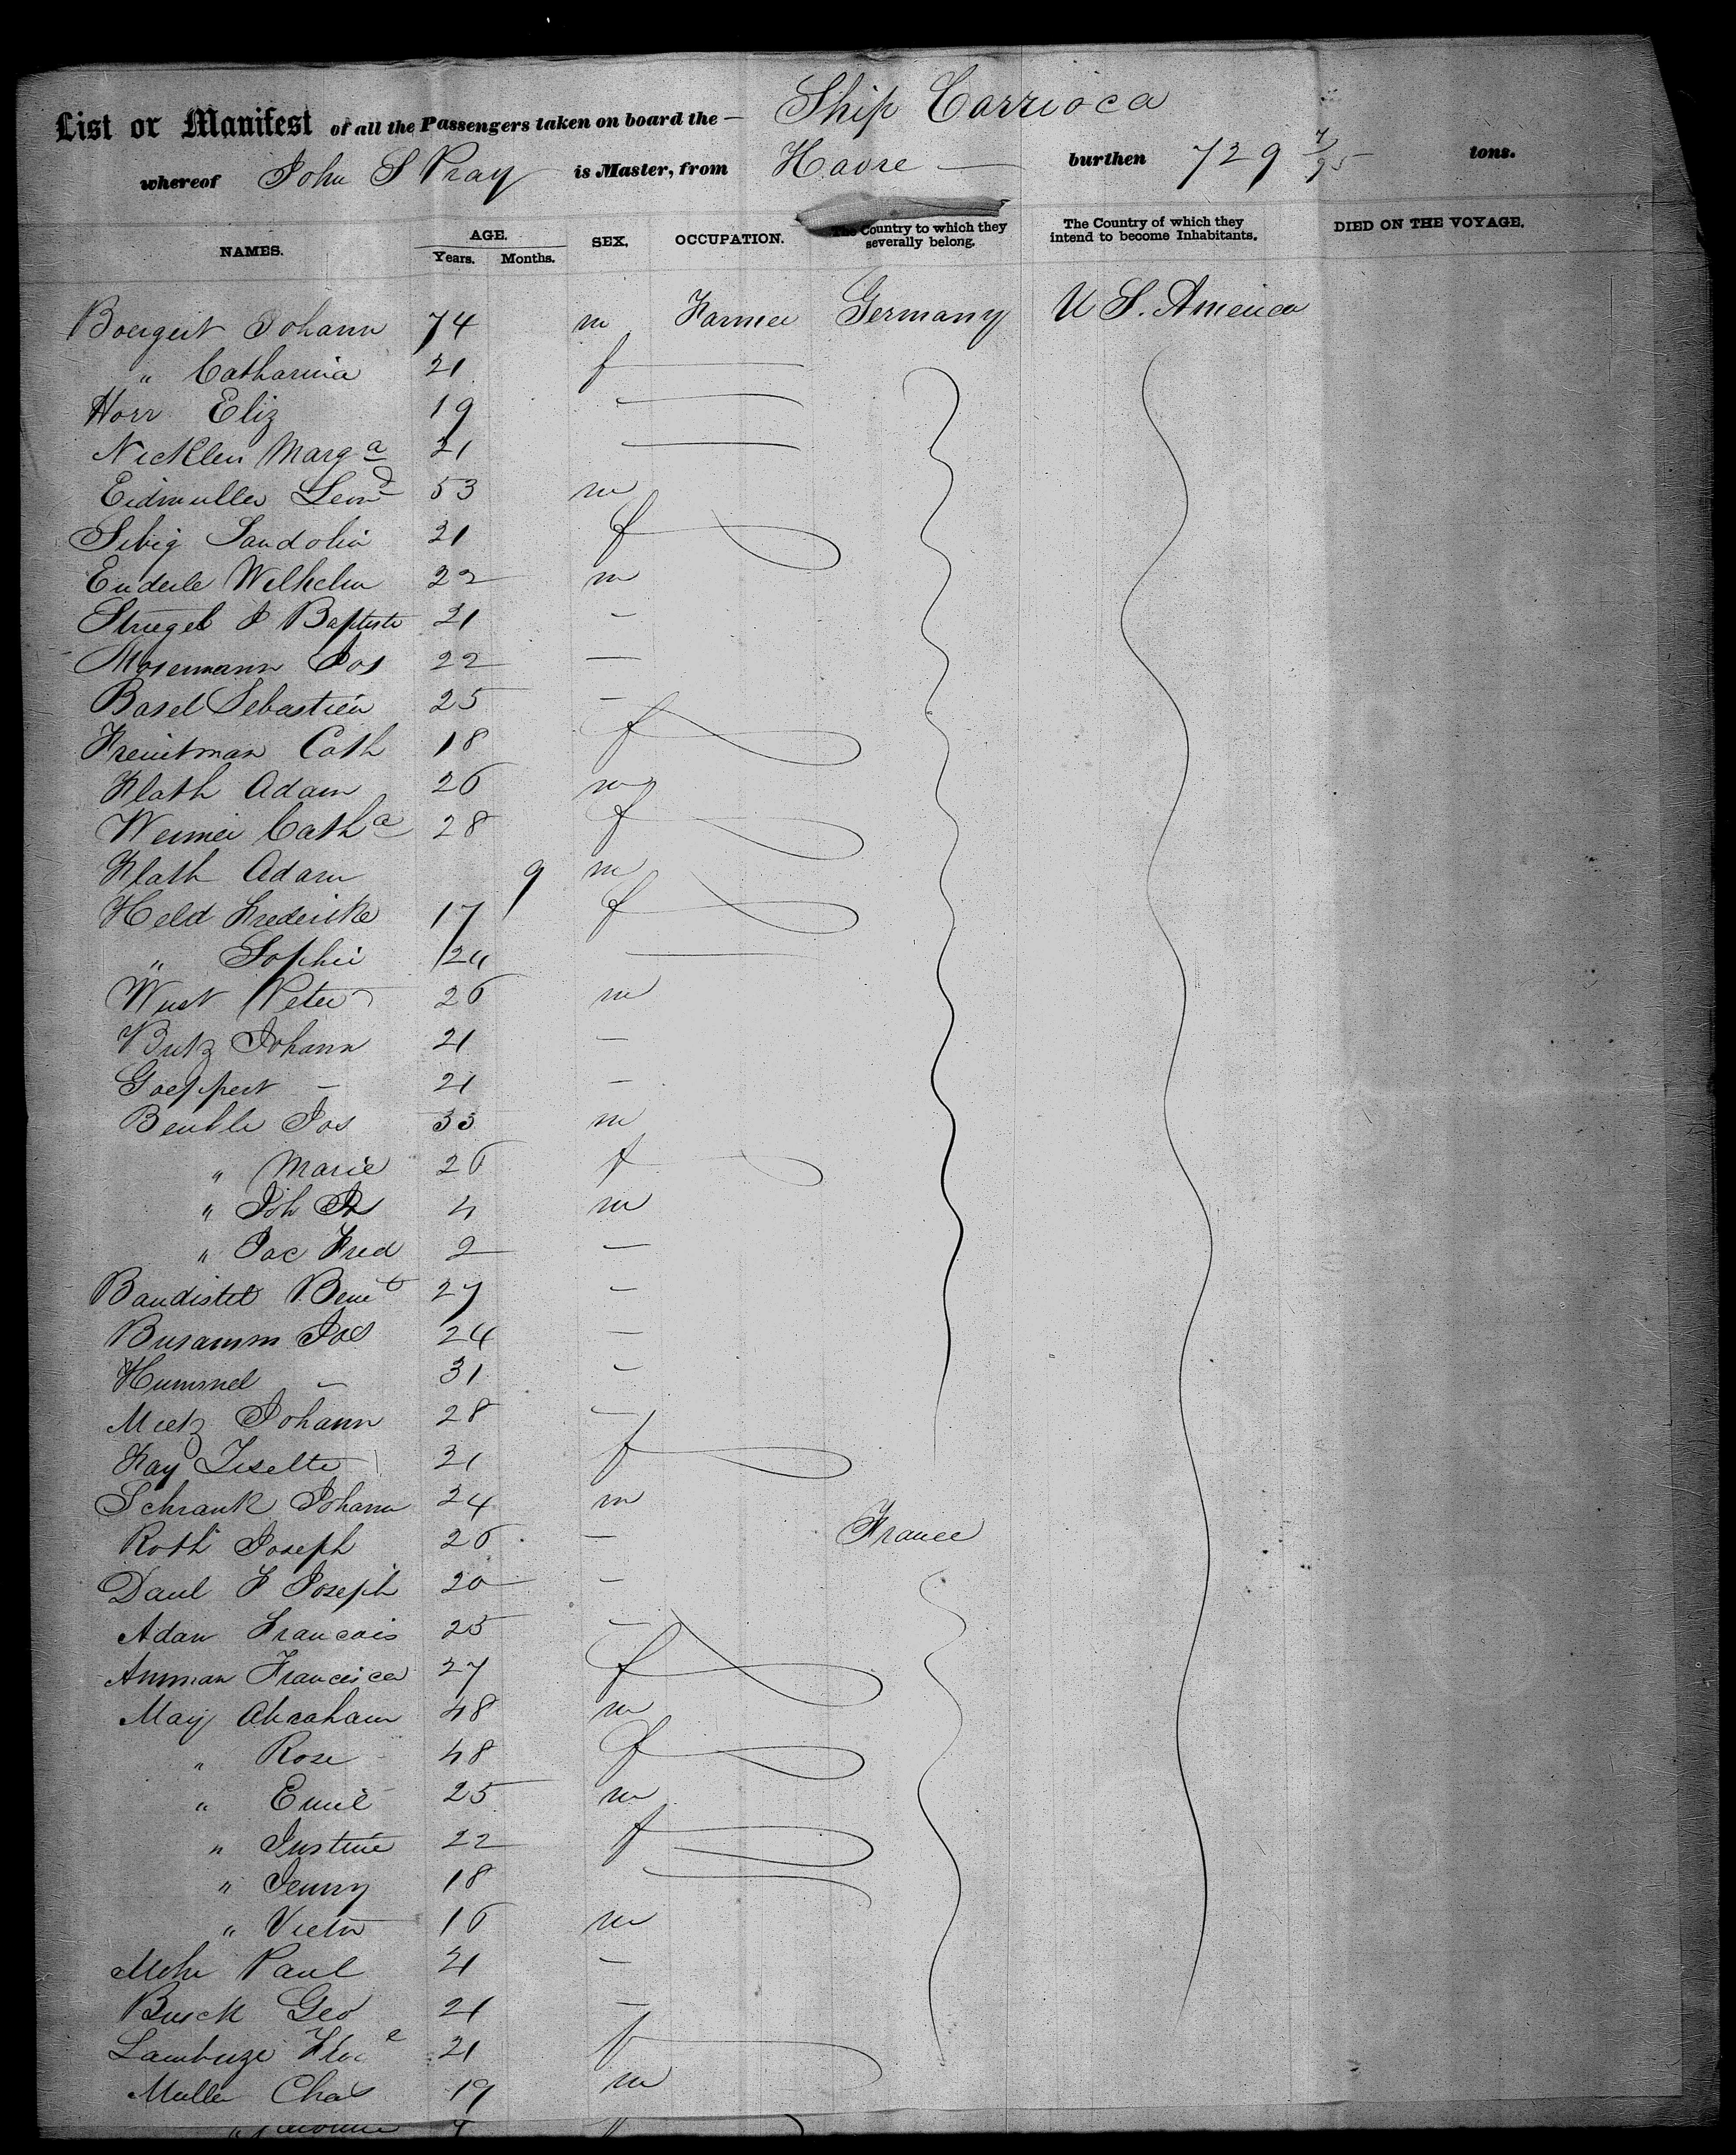 List or Manifest of all the Passengers taken on board the — Ship Carrioca
whereof John S Pray is Master, from Havre — burthen 729 7/95 tons.
NAMES. AGE. Years. Months. SEX. OCCUPATION. The Country to which they severally belong. The Country of which they intend to become Inhabitants. DIED ON THE VOYAGE.
Boergert Johann 74 m Farmer Germany U S. America
" Catharina 21 f
Horr Eliz 19
Nicklen Marga 21
Eidmuller Leond 53 m
Sibig Landolin 21 f
Enderle Wilhelm 22 m
Struegel J Baptiste 21 —
Mosemann Jos 22 —
Basel Sebastien 25 —
Freuitman Cath 18 f
Flath Adam 26 m
Weimer Catha 28 f
Flath Adam 9 m
Held Frederike 17 f
" Sophie 24
Wust Peter 26 m
Butz Johann 21 —
Goeppert — 21 —
Beuhle Jos 33 m
" Marie 26 f
" Joh 4 m
" Jac Fred 2 —
Baudistel Benet 27 —
Busamm Jos 24 —
Hummel — 31 —
Metz Johann 28 —
Fay Liselte 21 f
Schrank Johann 24 m
Roth Joseph 26 — France
Daul F Joseph 20 —
Adan Francais 25 —
Amman Francisca 27 f
May Abraham 48 m
" Rose 48 f
" Emil 25 m
" Justine 22 f
" Jenny 18
" Victor 16 m
Mohr Paul 21 —
Busch Geo 21 —
Lambuge 21 f
Muller Chas 19 m